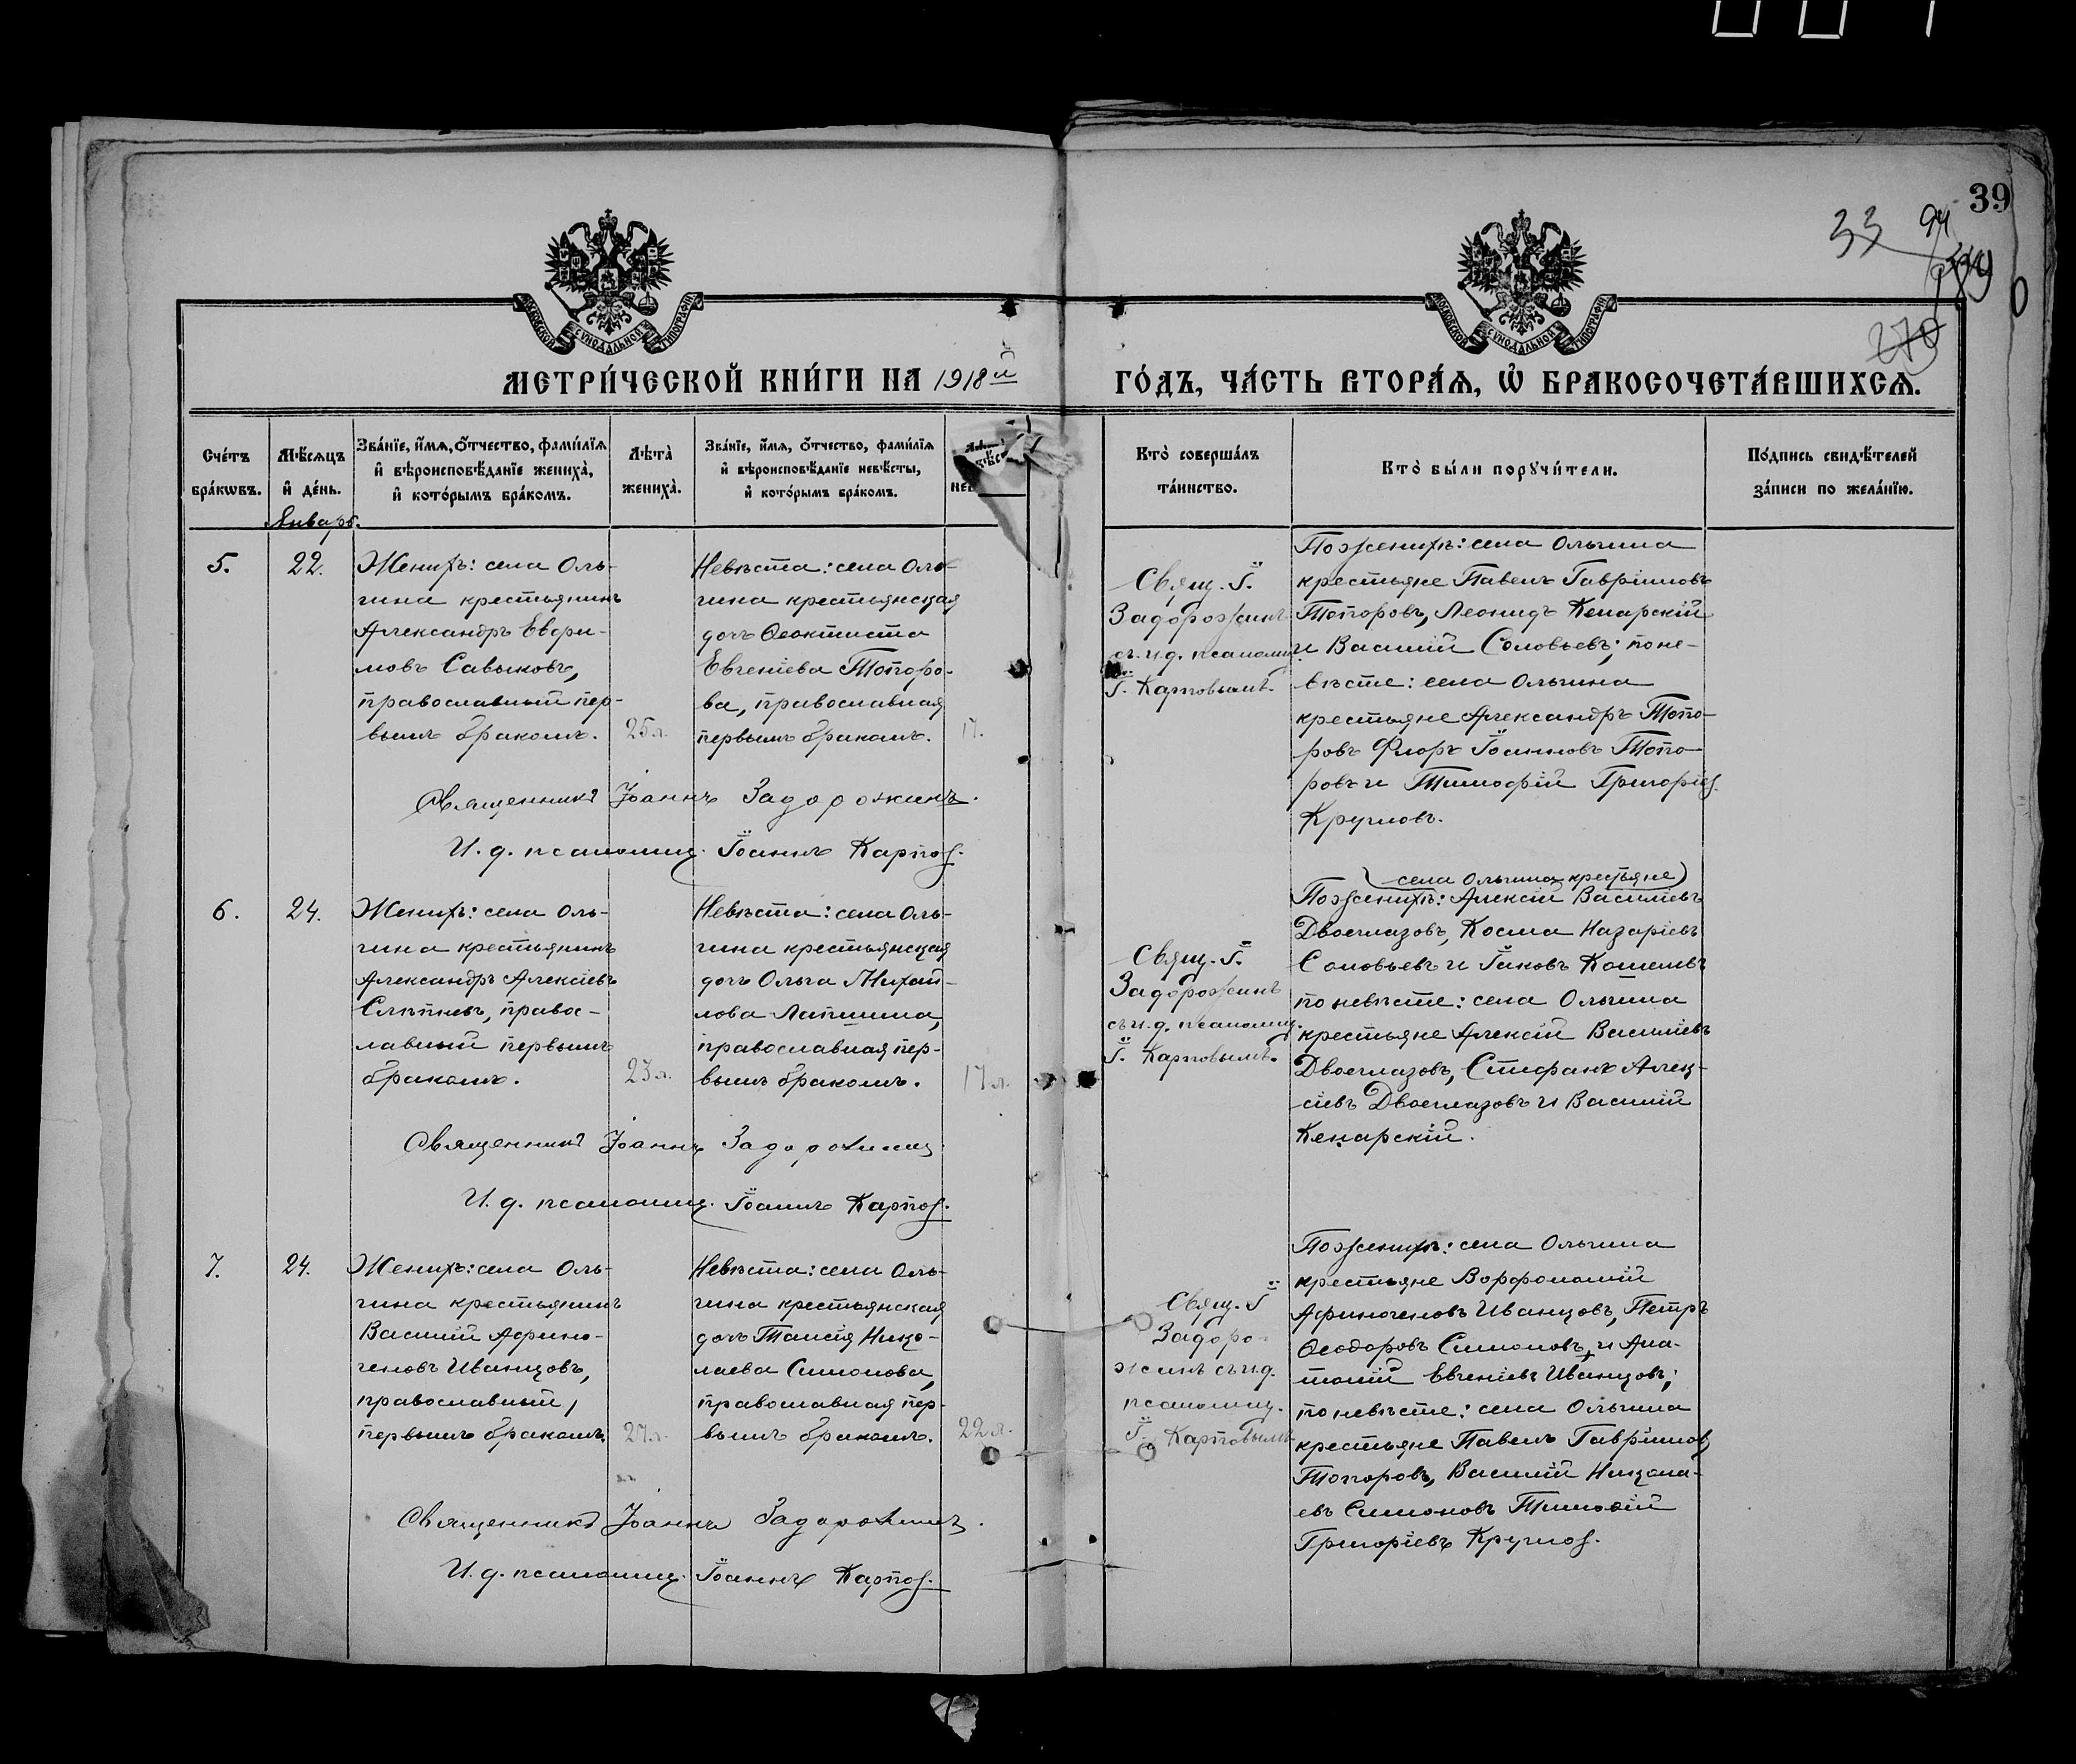 39
33
94
270
МОСКОВСКОЙ СѴНОДАЛЬНОЙ ТИПОГРАФІИ
МОСКОВСКОЙ СѴНОДАЛЬНОЙ ТИПОГРАФІИ
МЕТРИ́ЧЕСКОЙ КНИ́ГИ НА 1918й
ГО́ДЪ, ЧА́СТЬ ВТОРА́Ѧ, Ѡ҆ БРАКОСОЧЕТА́ВШИХСѦ.
Сче́тъ бра́кѡвъ.
Мѣ́сѧцъ и҆ де́нь.
Зва́нїе, и҆́мѧ, ѻ҆́тчество, фами́лїѧ и҆ вѣроисповѣ́данїе жениха̀, и҆ кото́рымъ бра́комъ.
Лѣта̀ жениха̀.
Зва́нїе, и҆́мѧ, ѻ҆́тчество, фами́лїѧ и҆ вѣроисповѣ́данїе невѣ́сты, и҆ кото́рымъ бра́комъ.
Кто̀ соверша́лъ та́инство.
Кто̀ бы́ли порꙋчи́тели.
По́дпись свидѣ́телей за́писи по жела́нїю.
Январь.
5.
22.
Женихъ: села Оль-
гина крестьянинъ
Александръ Евфи-
мовъ Савыковъ,
православный пер-
вымъ бракомъ.
25 л.
Невѣста: села Оль-
гина крестьянская
дочь Ѳеоктиста
Евгеніева Топоро-
ва, православная
первымъ бракомъ.
17.
Свящ. І.
Задорожинъ
съ и.д. псаломщ.
І. Карповымъ.
По женихѣ: села Ольгина
крестьяне Павелъ Гавріиловъ
Топоровъ, Леонидъ Кенарскій
и Василій Соловьевъ; по не-
вѣсте: села Ольгина
крестьяне Александръ Топо-
ровъ Флоръ Іоанновъ Топо-
ровъ и Тимофій Григоріев.
Кругловъ.
Священникъ Іоаннъ Задорожинъ.
И. д. псаломщ. Іоаннъ Карпов.
6.
24.
Женихъ: села Оль-
гина крестьянинъ
Александръ Алексіевъ
Слѣпневъ, правос-
лавный первымъ
бракомъ.
23 л.
Невѣста: села Оль-
гина крестьянская
дочь Ольга Михай-
лова Лапшина,
православная пер-
вымъ бракомъ.
17 л.
Свящ. І.
Задорожинъ
съ и.д. псаломщ.
І. Карповымъ.
села Ольгина крестьяне
По женихѣ: Алексій Василіевъ
Двоеглазовъ, Косма Назаріевъ
Соловьевъ и Іаковъ Кошелевъ
по невѣсте: села Ольгина
крестьяне Алексій Василіевъ
Двоеглазовъ, Стефанъ Алек-
сіевъ Двоеглазовъ и Василій
Кенарскій.
Священникъ Іоаннъ Задорожинъ
И. д. псаломщ. Іоаннъ Карпов.
7.
24.
Женихъ: села Оль-
гина крестьянинъ
Василій Афино-
геновъ Иванцовъ,
православный,
первымъ бракомъ.
27 л.
Невѣста: села Оль-
гина крестьянская
дочь Таисія Нико-
лаева Симонова,
православная пер-
вымъ бракомъ.
22 л.
Свящ. І
Задоро-
жинъ съ и.д.
псаломщ.
І. Карповымъ
По женихѣ: села Ольгина
крестьяне Ворфоломій
Афиногеновъ Иванцовъ, Петръ
Ѳеодоровъ Симоновъ, и Ана-
толій Евгеніевъ Иванцовъ;
по невѣсте: села Ольгина
крестьяне Павелъ Гавріилов
Топоровъ, Василій Никола-
евъ Симоновъ Тимофій
Григоріевъ Круглов.
Священникъ Іоаннъ Задорожинъ.
И. д. псаломщ. Іоаннъ Карпов.